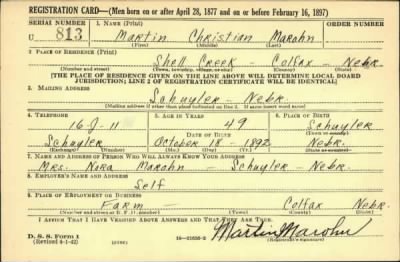 REGISTRATION CARD—(Men born on or after April 28, 1877 and on or before February 16, 1897)
SERIAL NUMBER 1. NAME (Print)
U 813 Martin Christian Marohn
(First) (Middle) (Last)
2. PLACE OF RESIDENCE (Print)
Shell Creek - Colfax - Nebr.
(Number and street) (Town, township, village, or city) (County) (State)
[THE PLACE OF RESIDENCE GIVEN ON THE LINE ABOVE WILL DETERMINE LOCAL BOARD
JURISDICTION; LINE 2 OF REGISTRATION CERTIFICATE WILL BE IDENTICAL]
3. MAILING ADDRESS
Schuyler - Nebr.
[Mailing address if other than place indicated on line 2. If same insert word same]
4. TELEPHONE 5. AGE IN YEARS 6. PLACE OF BIRTH
16-J-11 49 Schuyler
DATE OF BIRTH (Town or county)
Schuyler October 18 - 1892 Nebr.
(Exchange) (Number) (Mo.) (Day) (Yr.) (State or country)
7. NAME AND ADDRESS OF PERSON WHO WILL ALWAYS KNOW YOUR ADDRESS
Mrs. Nora Marohn - Schuyler - Nebr.
8. EMPLOYER'S NAME AND ADDRESS
Self
9. PLACE OF EMPLOYMENT OR BUSINESS
Farm - Colfax Nebr.
(Number and street or R. F. D. number) (Town) (County) (State)
I AFFIRM THAT I HAVE VERIFIED ABOVE ANSWERS AND THAT THEY ARE TRUE.
D. S. S. Form 1
(Revised 4-1-42) (over) 16-21630-2 Martin Marohn
(Registrant's signature)